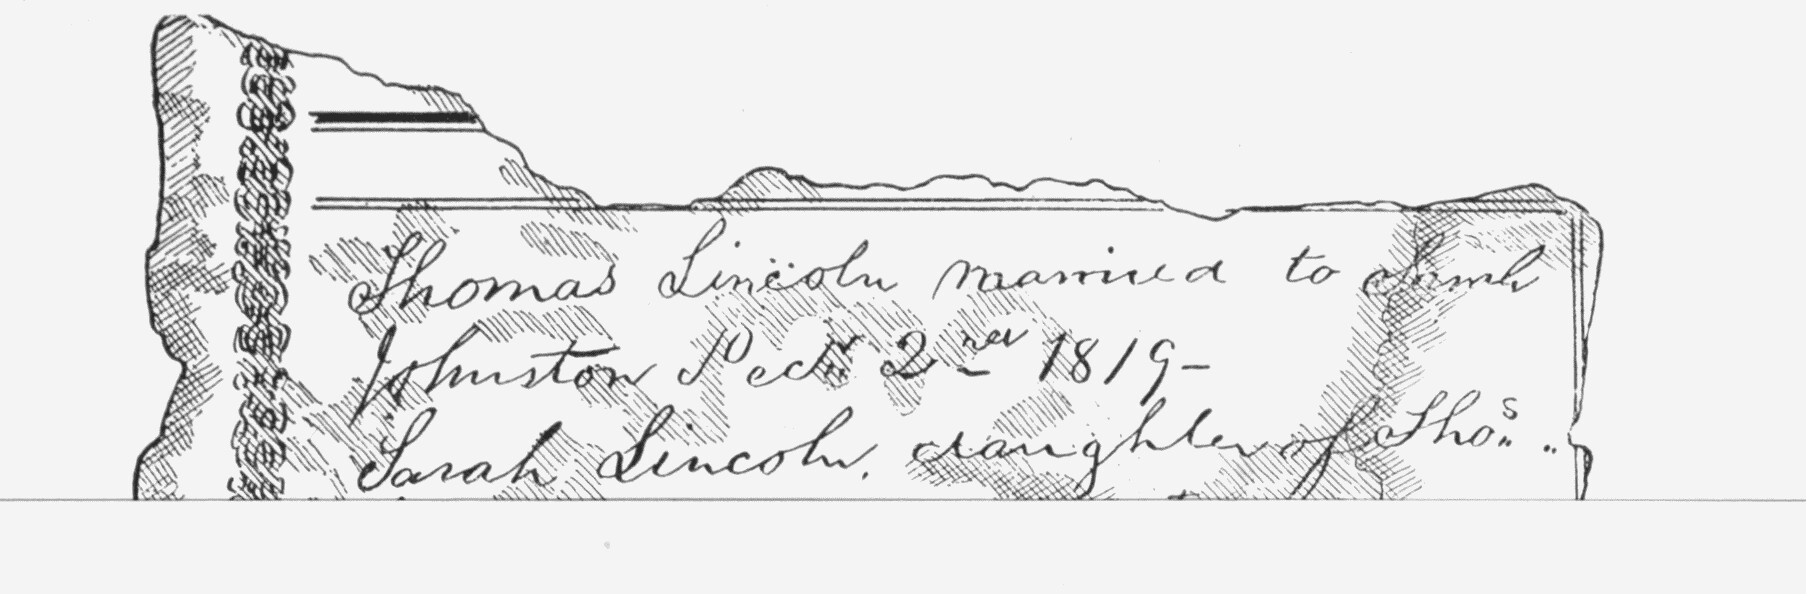 Thomas Lincoln married to Sarah
Johnston Decr 2nd 1819—
Sarah Lincoln, daughter of Thos.